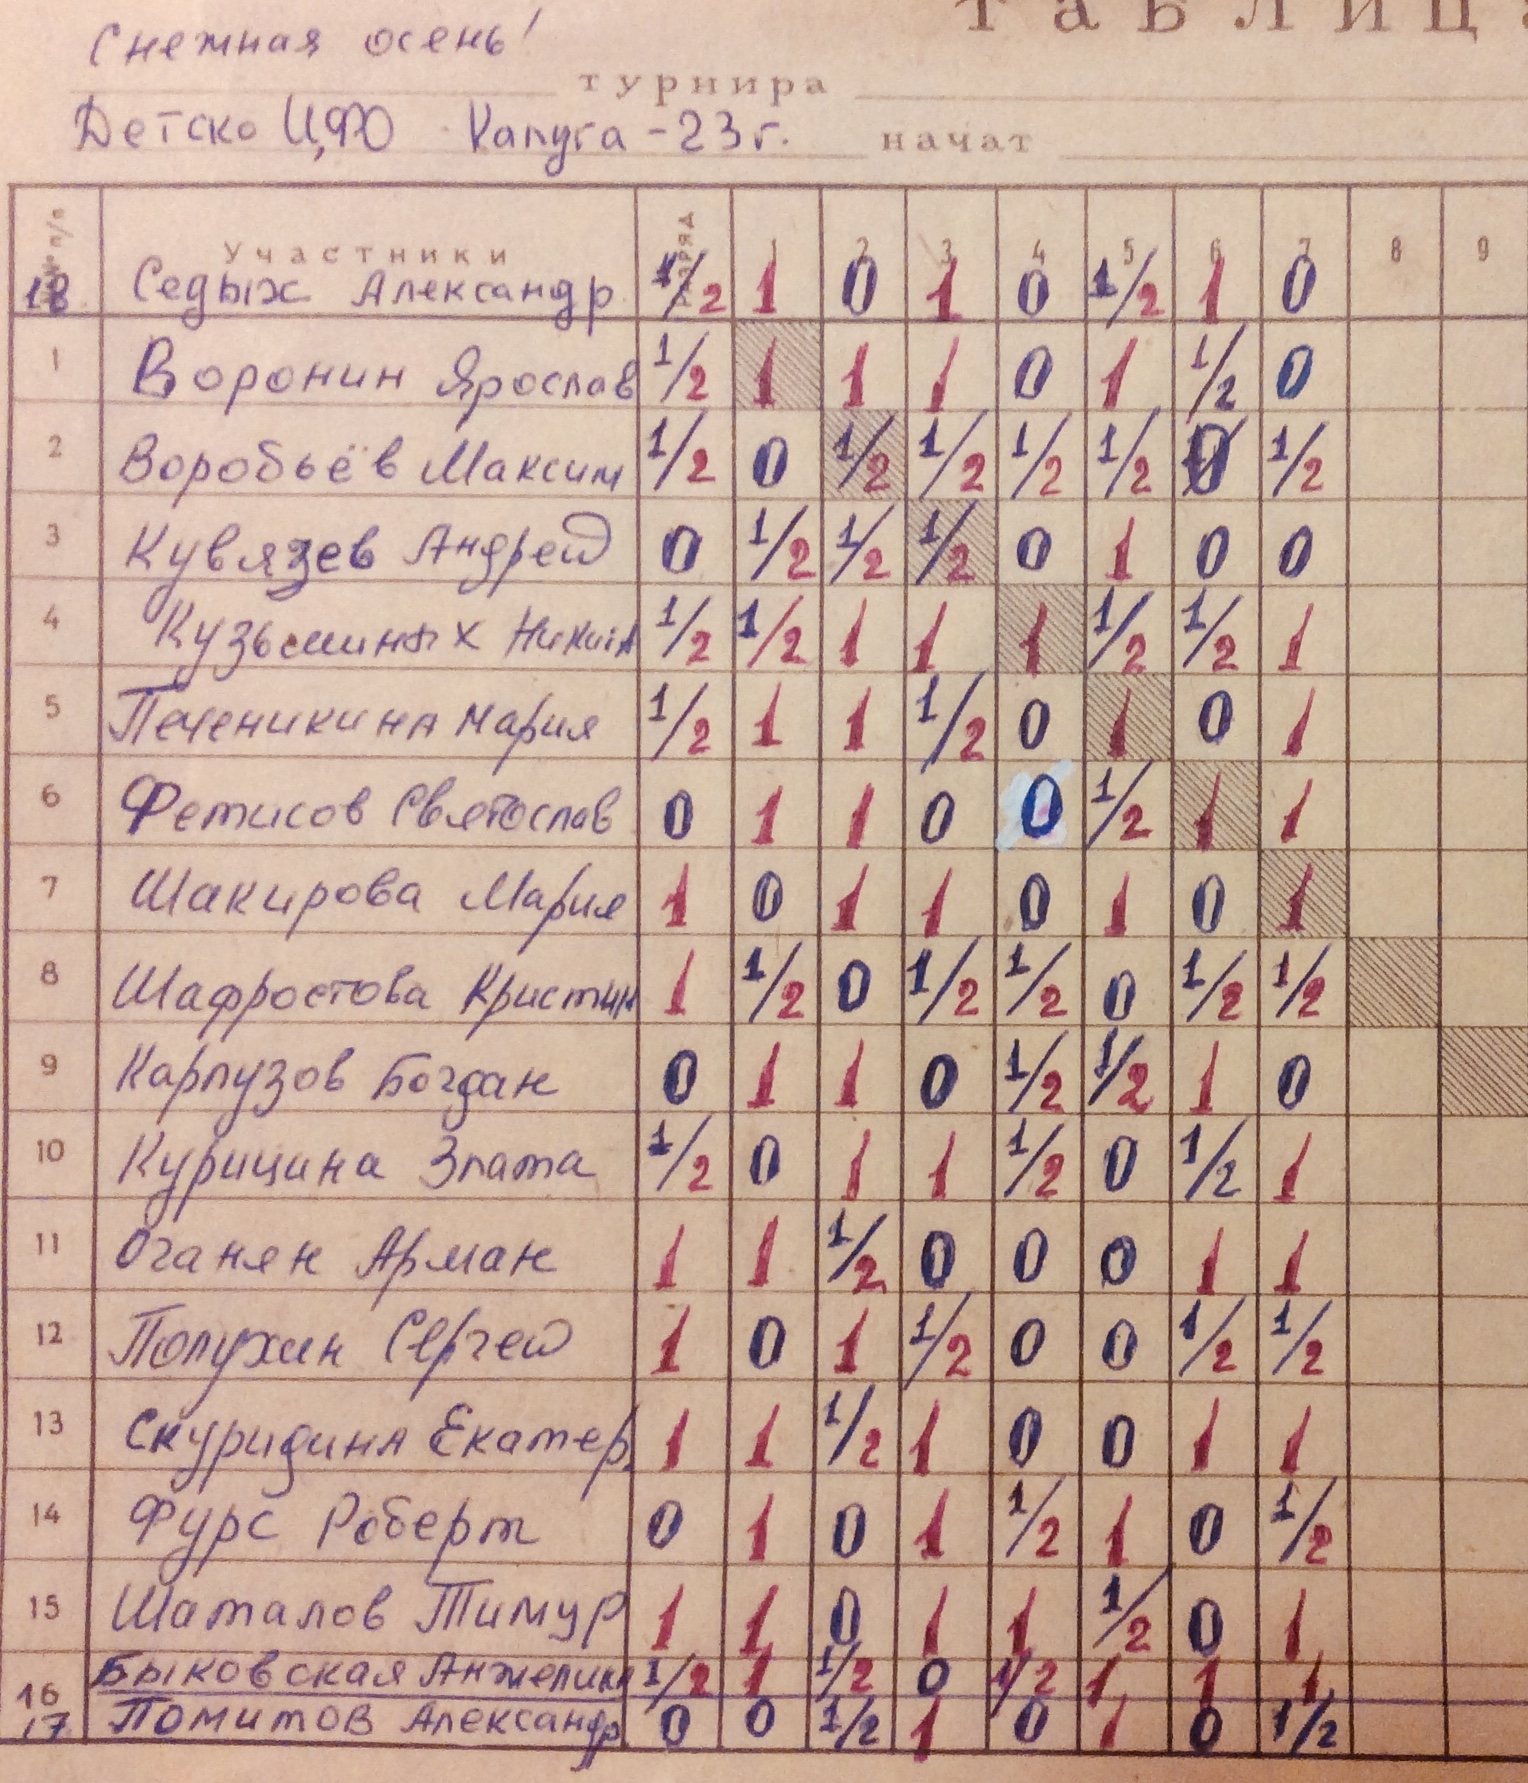 Таблица
Снежная осень!
турнира
Детско ЦФО Калуга-23г.
начат
№ п/п Участники РАЗРЯД 1 2 3 4 5 6 7 8 9
18 Седых Александр 1/2 1 0 1 0 1/2 1 0
1 Воронин Ярослав 1/2 1 1 1 0 1 1/2 0
2 Воробьёв Максим 1/2 0 1/2 1/2 1/2 1/2 1/2
3 Кувязев Андрей 0 1/2 1/2 1/2 0 1 0 0
4 Кузьминых Никита 1/2 1/2 1 1 1 1/2 1/2 1
5 Печеникина Мария 1/2 1 1 1/2 0 1 0 1
6 Фетисов Святослав 0 1 1 0 0 1/2 1 1
7 Шакирова Мария 1 0 1 1 0 1 0 1
8 Шафростова Кристин 1 1/2 0 1/2 1/2 0 1/2 1/2
9 Карпузов Богдан 0 1 1 0 1/2 1/2 1 0
10 Курицина Злата 1/2 0 1 1 1/2 0 1/2 1
11 Оганян Арман 1 1 1/2 0 0 0 1 1
12 Полухин Сергей 1 0 1 1/2 0 0 1/2 1/2
13 Скуридина Екатер. 1 1 1/2 1 0 0 1 1
14 Фурс Роберт 0 1 0 1 1/2 1 0 1/2
15 Шаталов Тимур 1 1 0 1 1 1/2 0 1
16 Быковская Анжелика 1/2 1 1/2 0 1/2 1 1 1
17 Помитов Александр 0 0 1/2 1 0 1 0 1/2